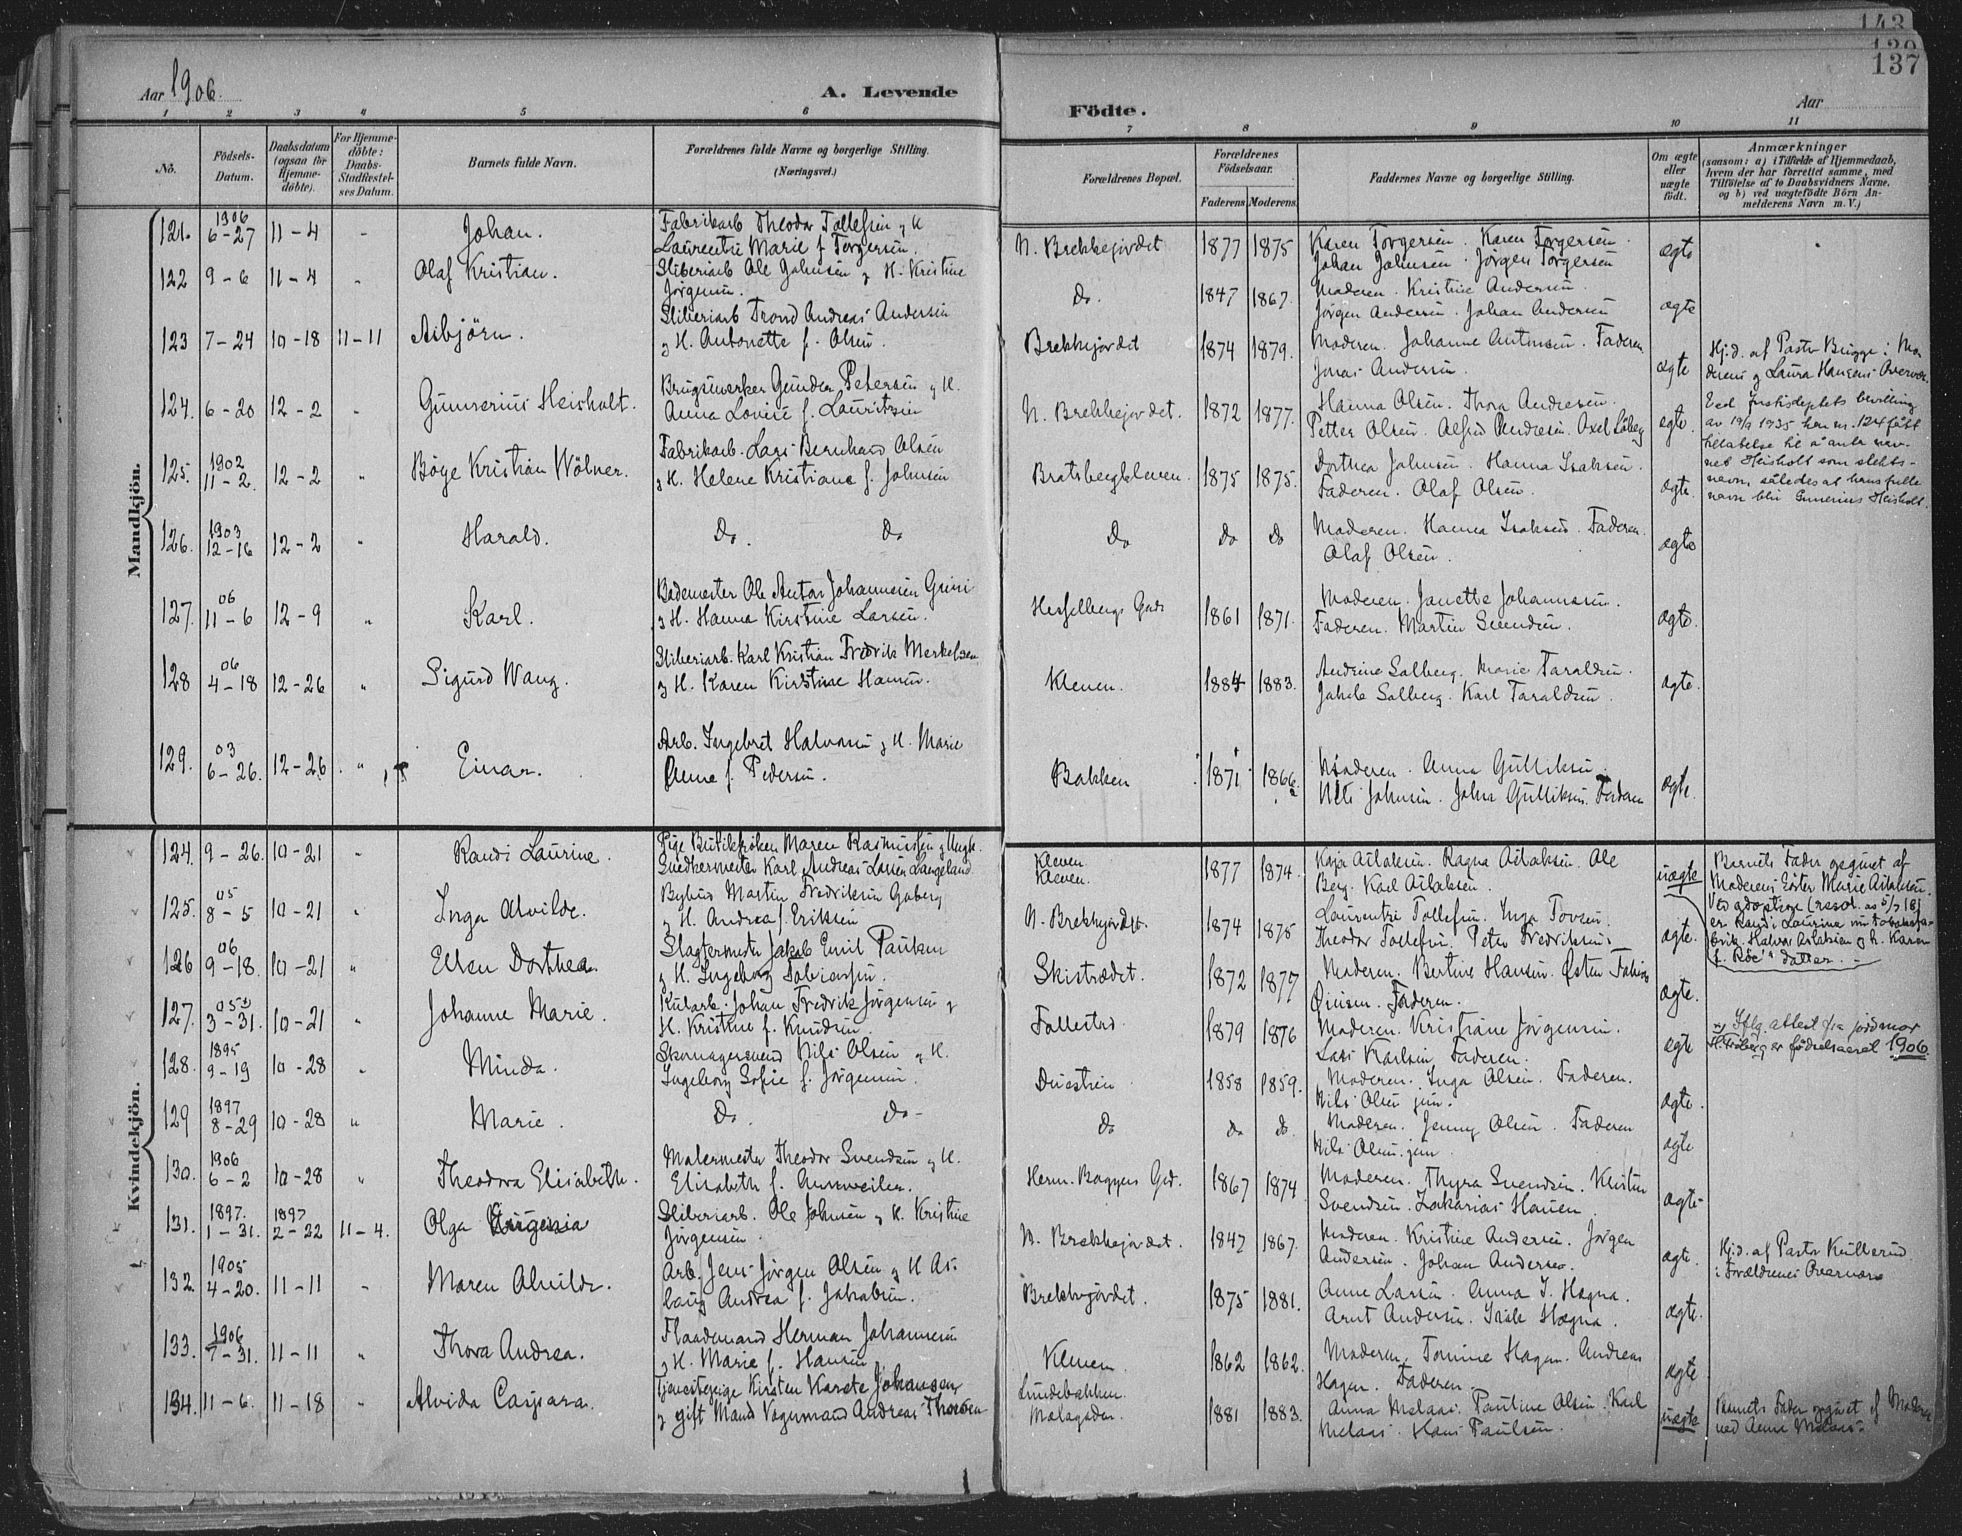 143
130
137
Aar 1906.
A. Levende
Födte.
Aar
1 2 3 4 5 6 7 8 9 10 11
No.
Födsels-Datum.
Daabsdatum (ogsaa for Hjemme-döbte).
For Hjemme-döbte: Daabs-Stadfæstel-ses Datum.
Barnets fulde Navn.
Forældrenes fulde Navne og borgerlige Stilling.
(Næringsvei.)
Forældrenes Bopæl.
Forældrenes Födselsaar.
Faderens Moderens
Faddernes Navne og borgerlige Stilling.
Om ægte eller uægte födt.
Anmærkninger
(saasom: a) i Tilfælde af Hjemmedaab,
hvem der har forrettet samme, med
Tilföielse af to Daabsvidners Navne,
og b) ved uægtefödte Börn An-
melderens Navn m. V.)
Mandkjön.
121. 1906 6-27 11-4 - Johan. Fabrikarb Theodor Tollefsen og H. Laurentze Marie f Torgersen. N. Brekkejordet 1877 1875 Karen Torgersen. Karen Torgersen. Johan Johnsen. Jörgen Torgersen ægte
122 9-6 11-4 - Olaf Kristian. Sliberiarb Ole Johnsen og H. Kristine Jörgensen. Do. 1847 1867. Moderen. Kristine Andersen. Jörgen Andersen. Johan Andersen ægte
123 7-24 10-18 11-11 Asbjörn. Sliberiarb Trond Andreas Andersen og H. Antonette f. Olsen. Brekkejordet 1874 1879. Moderen. Johanne Antonsen. Faderen Jonas Andersen. ægte Hj.d. af Pastor Brügge i Moderens og Laura Hansens Overvær.
124. 6-20 12-2 " Gunnerius Heisholt. Brugsnerker Gunder Petersen og H. Anna Lovise f. Lauritzen N. Brekkejordet. 1872 1877. Hanna Olsen. Thora Andresen. Petter Olsen. Alfred Andresen. Axel ægte. Ved Justisdeptets bevilling av 19/9 1935 har nr. 124 fått tillatelse til å anta navnet Heisholt som slektsnavn, således at hans fulle navn blir Gunerius Heisholt.
125. 1902 11-2. 12-2 " Böye Kristian Wölner. Fabrikarb. Lars Bernhard Olsen og H. Helene Kristiane f. Johnsen Bratsbergkleven. 1875 1875. Dorthea Johnsen. Hanna Isaksen. Faderen. Olaf Olsen. ægte.
126. 1903 12-16 12-2 " Harald. Do. Do Do Do Do Moderen. Hanna Isaksen. Faderen. Olaf Olsen. ægte
127. 06 11-6 12-9 " Karl. Bademester Ole Anton Johannesen Grini og H. Hanna Kirstine Larsen. Hesselbergs Gade 1861 1871. Moderen. Janette Johannesen. Faderen. Martin Svendsen. ægte.
128 06 4-18 12-26 " Sigurd Wang. Sliberiarb. Karl Kristian Fredrik Merkelsen og H. Karen Kirstine Hansen. Kleven. 1884 1883. Andrine Solberg. Marie Taraldsen. Jakob Solberg. Karl Taraldsen. ægte.
129. 03 6-26. 12-26 " Einar. Arb. Ingebret Halvorsen og H. Marie Olene f. Pedersen. Bakken 1871 1866. Moderen. Anna Gulliksen. Nils Johnsen. Johan Gulliksen. Faderen ægte.
Kvindekjön.
124. 9-26. 10-21 " Randi Laurine. Pige Butikfröken Maren Rasmussen og Ungk. Snedkermester Karl Andreas Larsen Langeland. Kleven. Kleven. 1877 1874. Kaja Aslaksen. Ragna Aslaksen. Ole Berg. Karl Aslaksen. uægte Barnets Fader opgivet af Moderens Söster Marie Aslaksen. Ved adoption (resol. as 5/7 18) er Randi Laurine nu tobaksfabrik. Halvor Aslaksen og h. Karen f. Röe's datter.
125. 05 8-5 10-21 " Inga Alvilde. Bybud Martin Fredriksen Gaberg og H. Andrea f. Eriksen N. Brekkejordet. 1874 1875 Laurentze Tollefsen. Inga Tovsen. Theodor Tollefsen. Peter Fredriksen. ægte.
126 06 9-18. 10-21 " Ellen Dorthea. Slagtermester Jakob Emil Paulsen og H. Ingeborg Tobiassen. Skistrædet. 1872 1877 Moderen. Bertine Hansen. Östen Faderen. ægte.
127. 05 3-31. 10-21 " Johanne Marie. Kularb. Johan Fredrik Jörgensen og H. Kristine f. Knudsen. Follestad 1879 1876 Moderen. Kristiane Jörgensen. Lars Karlsen Faderen. ægte Iflg. attest fra jordmor H. Fröberg er födselsaaret 1906.
128. 1895 9-19 10-28 " Minda. Skomagersvend Nils Olsen og H. Ingeborg Sofie f. Jörgensen. Duestien 1858 1859. Moderen. Inga Olsen. Faderen. Nils Olsen jun. ægte.
129 1897 8-29 10-28 " Marie. Do. Do- Do Do Do. Moderen. Jenny Olsen. Faderen Nils Olsen jun ægte
130. 1906 6-2 10-28 " Theodora Elisabeth. Malermester Theodor Svendsen og H. Elisabeth f. Annweiler. Herm. Baggers Gd. 1867 1874 Moderen. Thyra Svendsen. Kristen Svendsen. Zakarias Hansen. ægte-
131. 1897. 1-31. 1897 2-22 11-4. Olga Virginia Sliberiarb. Ole Johnsen og H. Kristine Jörgensen. N. Brekkejordet. 1847 1867. Moderen. Kristine Andersen. Jörgen Andersen. Johan Andersen. ægte. Hj.d. af Pastor Kullerud i Forældrenes Overvær
132. 1905 4-20. 11-11 " Maren Alvilde. Arb. Jens Jörgen Olsen og H. Aslaug Andrea f. Jakobsen. Brekkejordet. 1875 1881. Anne Larsen. Anna I. Hagna. Arnt Andersen. Isak Hagna. ægte.
133. 1906 7-31. 11-11 " Thora Andrea. Flaademand Herman Johannesen og H. Marie f. Hansen Kleven. 1862 1862. Moderen. Tomine Hagen. Andreas Hagen. Faderen. ægte
134. 11-6. 11-18 " Alvida Caspara. Tjenestepige Kirsten Karete Johansen og gift Mand Vognmand Andreas Thorsen Lundebakken. Melagaden. 1881 1883. Anna Melaas. Pauline Olsen. Karl Melaas. Hans Paulsen. uægte Barnets Fader opgivet af Moderen ved Anna Melaas.